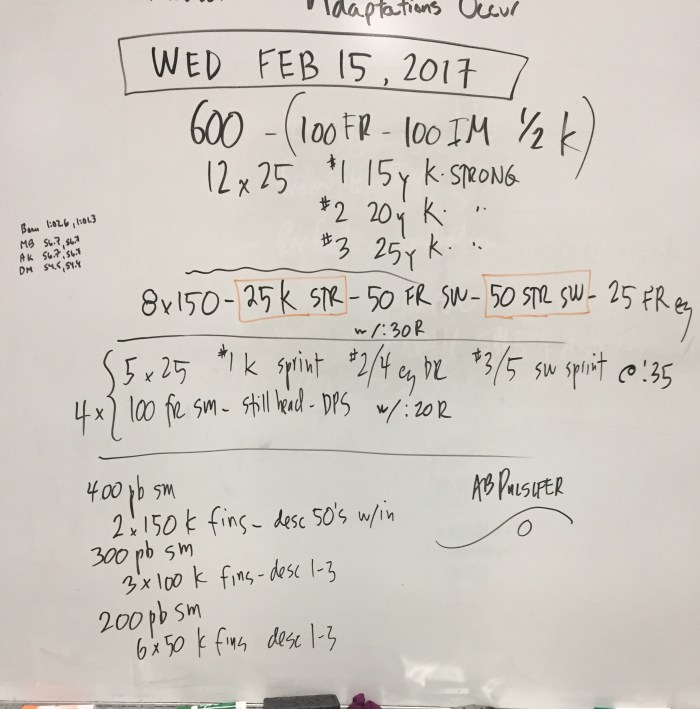 Adaptations Occur
WED FEB 15, 2017
600 - (100 FR - 100 IM 1/2 k)
12 x 25 #1 15y K. STRONG
#2 20y K. "
#3 25y K. "
1:02.6, 1:01.3
MB 56.7, 56.7
AK 56.7, 56.7
DM 54.5, 54.4
8x150 - 25 k STR - 50 FR SW - 50 STR SW - 25 FR ez
w/:30R
4x { 5 x 25 #1 k sprint #2/4 ez bk #3/5 sw sprint @:35
100 fr sm - still head - DPS w/:20R
400 pb sm
2x150 k fins - desc 50's w/in
300 pb sm
3x100 k fins - desc 1-3
200 pb sm
6x50 k fins desc 1-3
AB PULSIFER